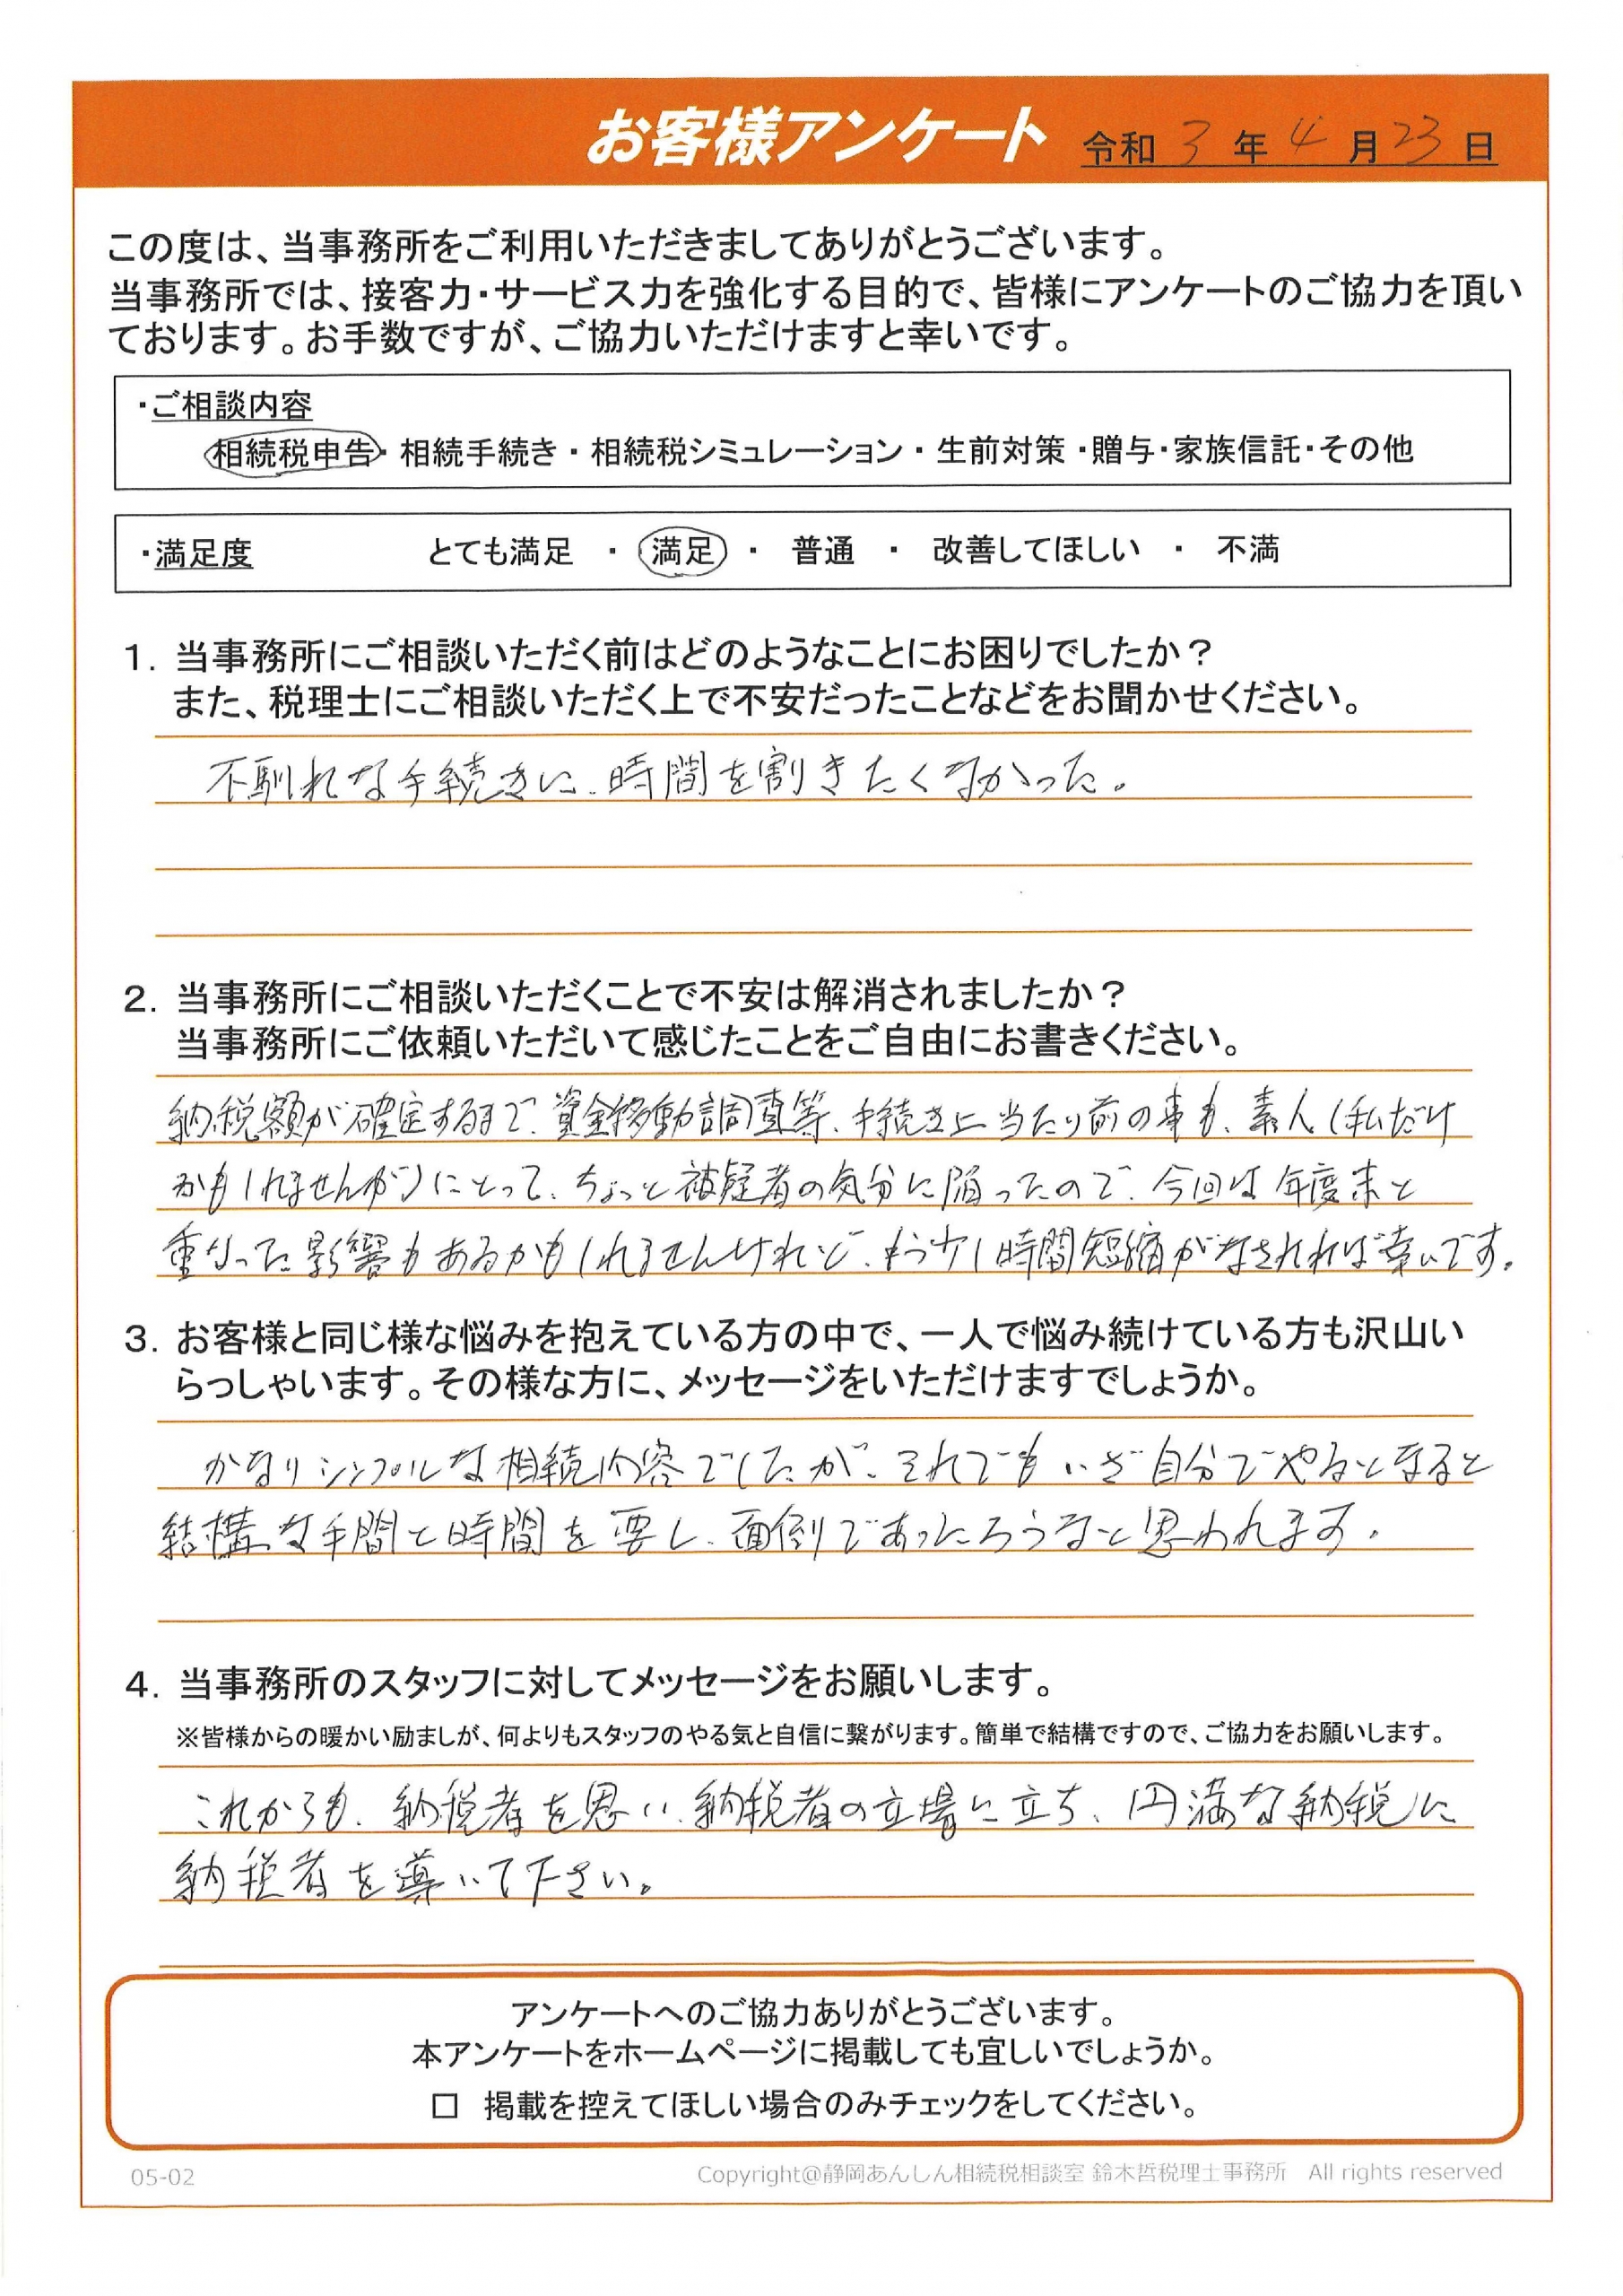 お客様アンケート 令和 3 年 4 月 23 日
この度は、当事務所をご利用いただきましてありがとうございます。
当事務所では、接客力・サービス力を強化する目的で、皆様にアンケートのご協力を頂い
ております。お手数ですが、ご協力いただけますと幸いです。
・ご相談内容
相続税申告・相続手続き・相続税シミュレーション・生前対策・贈与・家族信託・その他
・満足度 とても満足 ・ 満足 ・ 普通 ・ 改善してほしい ・ 不満
1. 当事務所にご相談いただく前はどのようなことにお困りでしたか？
また、税理士にご相談いただく上で不安だったことなどをお聞かせください。
不馴れな手続きに、時間を割きたくなかった。
2. 当事務所にご相談いただくことで不安は解消されましたか？
当事務所にご依頼いただいて感じたことをご自由にお書きください。
納税額が確定するまで、資金移動調査等、手続き上当たり前の事も、素人（私だけ
かもしれませんが）にとって、ちょっと被疑者の気分に陥ったので、今回は年度末と
重なった影響もあるかもしれませんけれど、もう少し時間短縮がなされれば幸いです。
3. お客様と同じ様な悩みを抱えている方の中で、一人で悩み続けている方も沢山い
らっしゃいます。その様な方に、メッセージをいただけますでしょうか。
かなりシンプルな相続内容でしたが、それでもいざ自分でやるとなると
結構な手間と時間を要し、面倒であったろうなと思われます。
4. 当事務所のスタッフに対してメッセージをお願いします。
※皆様からの暖かい励ましが、何よりもスタッフのやる気と自信に繋がります。簡単で結構ですので、ご協力をお願いします。
これからも、納税者を思い、納税者の立場に立ち、円満な納税に
納税者を導いて下さい。
アンケートへのご協力ありがとうございます。
本アンケートをホームページに掲載しても宜しいでしょうか。
□ 掲載を控えてほしい場合のみチェックをしてください。
05-02 Copyright@静岡あんしん相続税相談室 鈴木哲税理士事務所 All rights reserved